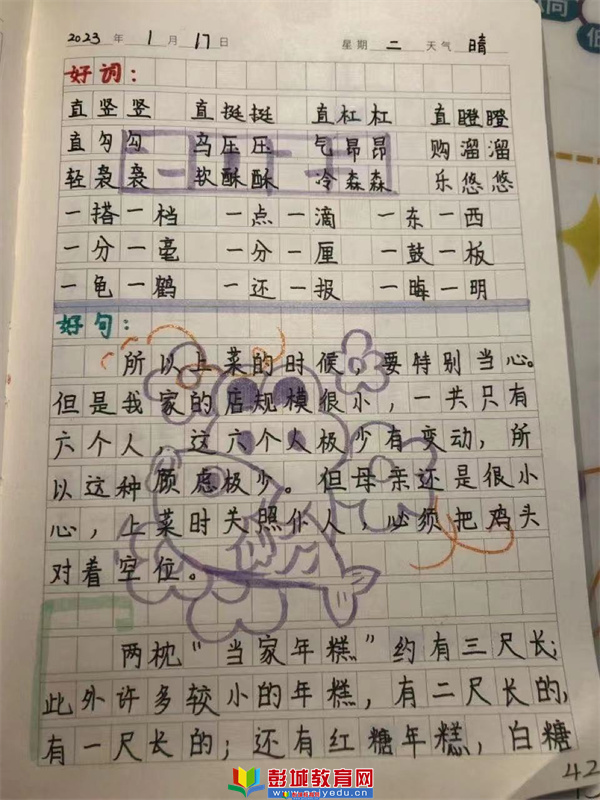 2023年1月17日 星期二 天气晴
好词：
直竖竖 直挺挺 直杠杠 直瞪瞪
直勾勾 乌压压 气昂昂 购溜溜
轻袅袅 软酥酥 冷森森 乐悠悠
一搭一档 一点一滴 一东一西
一分一毫 一分一厘 一鼓一板
一龟一鹤 一还一报 一晦一明
好句：
所以上菜的时候，要特别当心。
但是我家的店规模很小，一共只有
六个人，这六个人极少有变动，所
以这种顾虑极少。但母亲还是很小
心，上菜时关照仆人，必须把鸡头
对着空位。
两枕“当家年糕”约有三尺长；
此外许多较小的年糕，有二尺长的，
有一尺长的；还有红糖年糕，白糖
42
彭城教育网